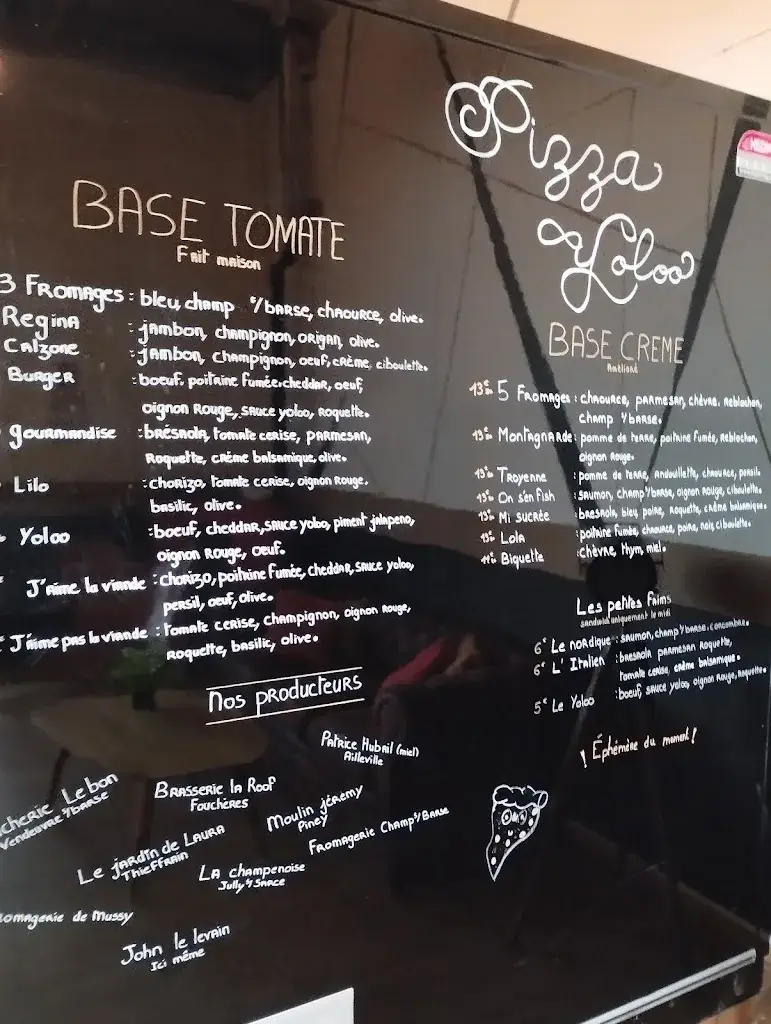 Pizza
Yoloo
BASE TOMATE
Fait maison
3 FROMAGES : bleu champ s/BARSE, CHAOURCE, olive.
Regina : jambon, champignon, origan, olive.
Calzone : jambon, champignon, oeuf, crème, ciboulette.
Burger : boeuf, poitrine fumée, cheddar, oeuf,
oignon Rouge, sauce yoloo, Roquette.
gourmandise : brésaola, tomate cerise, parmesan,
Roquette, crème balsamique, olive.
Lilo : chorizo, tomate cerise, oignon Rouge,
basilic, olive.
Yoloo : boeuf, cheddar, sauce yoloo, piment jalapeno,
oignon Rouge, oeuf.
J'aime la viande : chorizo, poitrine fumée, cheddar, sauce yoloo,
persil, oeuf, olive.
J'aime pas la viande : tomate cerise, champignon, oignon Rouge,
Roquette, basilic, olive.
BASE CREME
13€ 5 Fromages : chaource, parmesan, chèvre, Reblochon,
champ s/barse.
Montagnarde : pomme de terre, poitrine fumée, Reblochon,
oignon Rouge.
Troyenne : pomme de terre, andouillette, chaource, persil.
On s'en Fish : saumon, champ s/barse, oignon rouge, ciboulette.
Mi sucrée : bresaola, bleu, poire, Roquette, crème balsamique.
Lola : poitrine fumée, chaource, poire, noix, ciboulette.
Biquette : chèvre, thym, miel.
Les petites faims
sandwich uniquement le midi
6€ Le nordique : saumon, champ s/barse, concombre.
6€ L'Italien : bresaola parmesan roquette,
tomate cerise, crème balsamique.
5€ Le Yoloo : boeuf, sauce yoloo, oignon Rouge, Roquette.
! Éphémère du moment !
Nos producteurs
Patrice Hubail (miel)
Ailleville
cherie Lebon
Vendeuvre s/barse
Brasserie la Roof
Fouchères
Moulin jérémy
Piney
Fromagerie Champ s/Barse
Le jardin de Laura
Thieffrain
La champenoise
Jully s/ Sarce
romagerie de Mussy
John le levain
Ici même